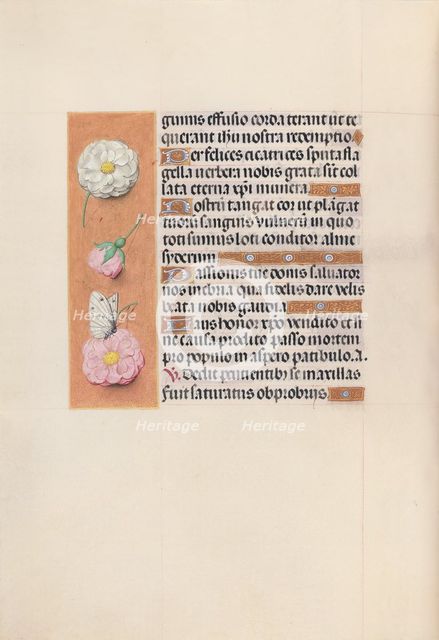 guinis effusio corda terant ut te
querant ihu nostra redemptio
Per felices cicatrices sputa fla
gella verbera nobis grata sit col
lata eterna xpi munera
Nostru tangat cor ut plagat
tuoru sanguis vulneru in quo
toti sumus loti conditor alme
syderum
Passionis tue donis salvator
nos inebria qua fidelis dare velis
beata nobis gaudia
Laus honor xpo vendito et si
ne causa prodito passo mortem
pro populo in aspero patibulo. A.
V. Dedit percutientibus se maxillas
Fuit saturatus obprobrijs
Heritage
Heritage
Heritage
Heritage
Heritage
Heritage